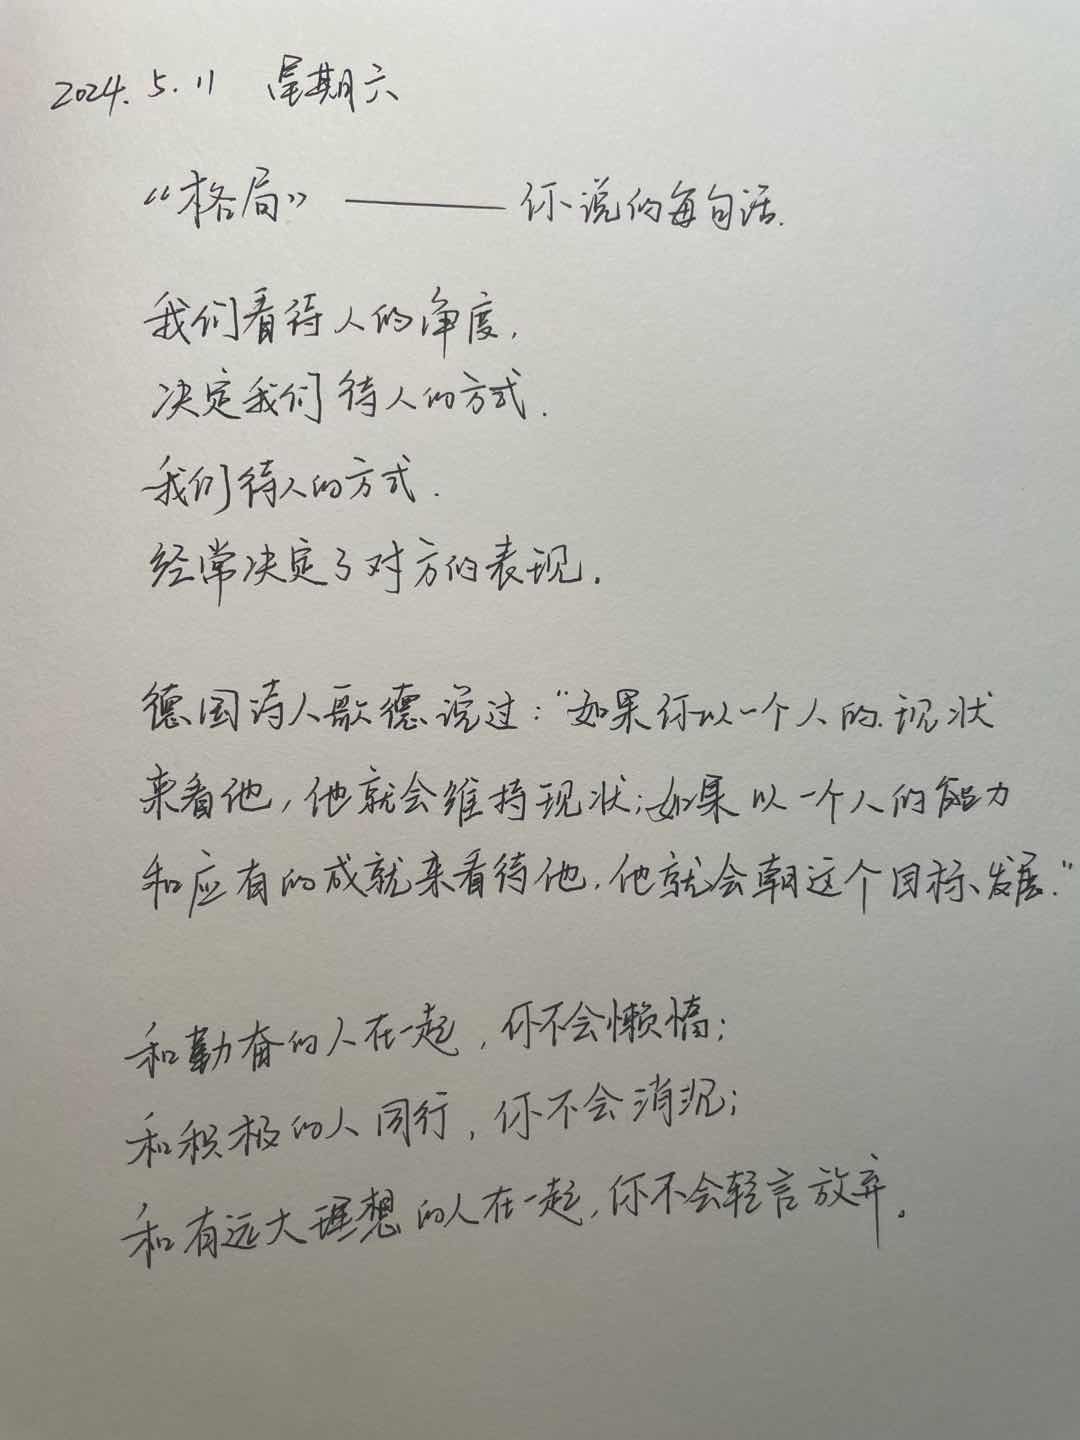 2024.5.11 星期六
“格局”———你说的每句话.
我们看待人的净度,
决定我们待人的方式.
我们待人的方式.
经常决定了对方的表现.
德国诗人歌德说过:“如果你以一个人的现状
来看他,他就会维持现状;如果以一个人的能力
和应有的成就来看待他,他就会朝这个目标发展.”
和勤奋的人在一起,你不会懒惰;
和积极的人同行,你不会消沉;
和有远大理想的人在一起,你不会轻言放弃。